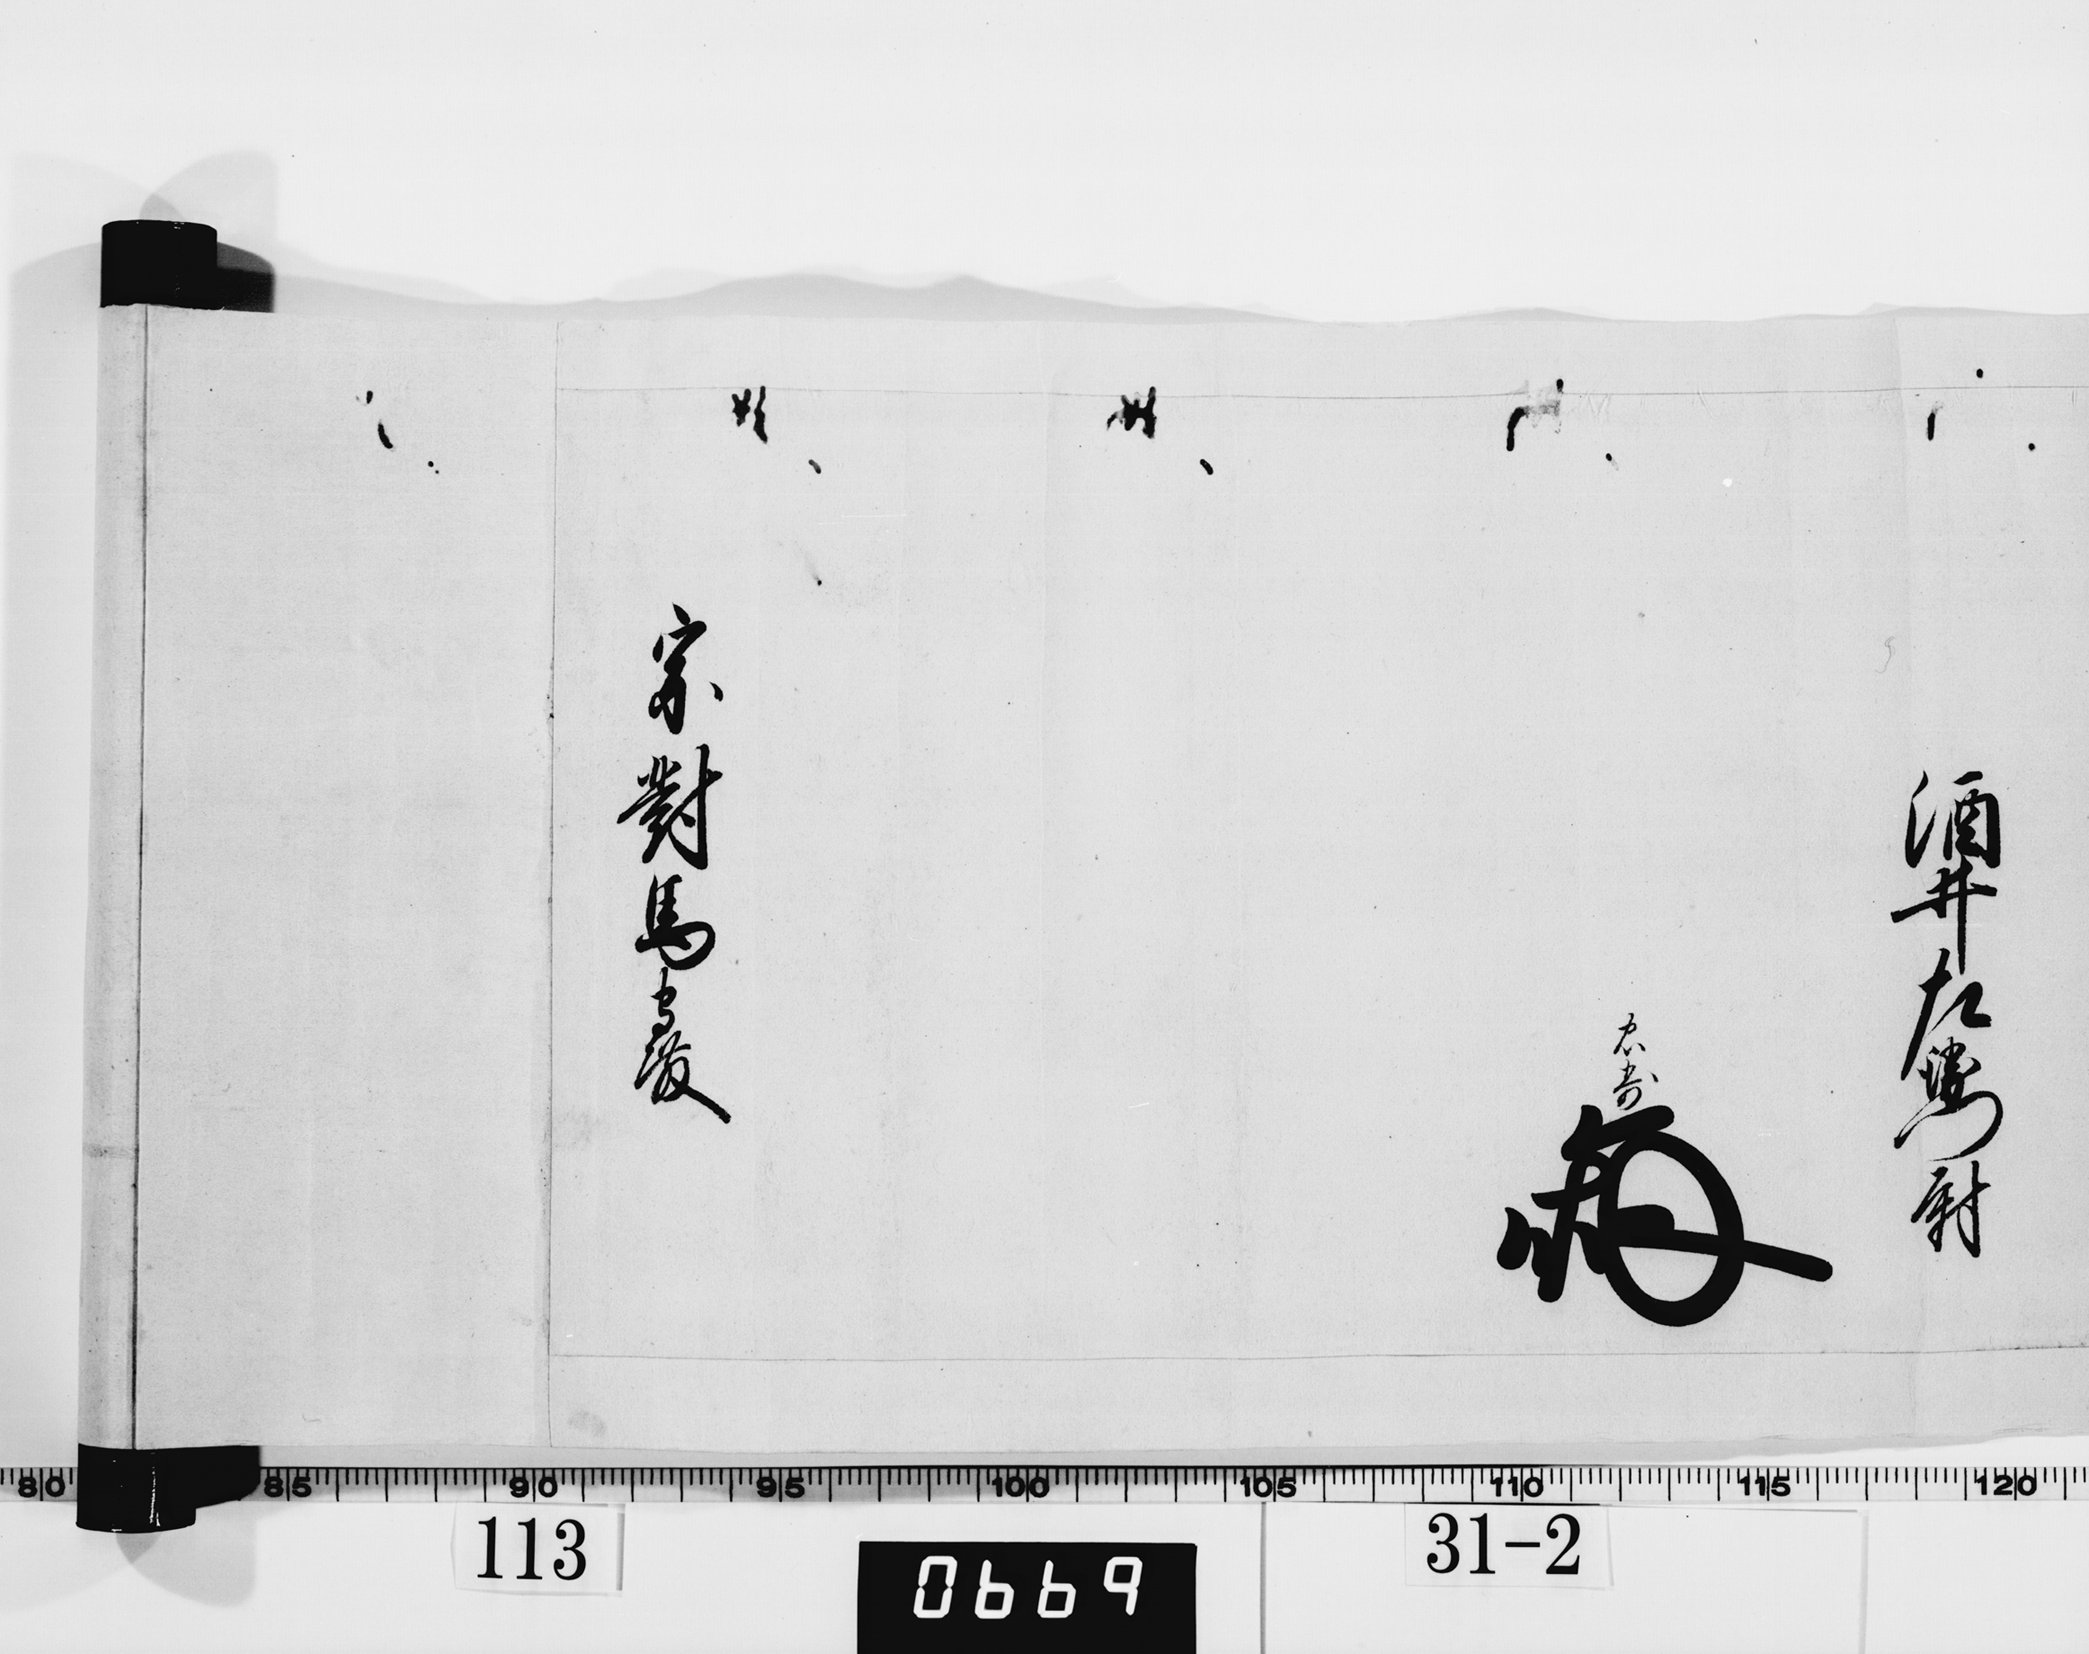 酒井左衛門尉
忠寄
宗對馬守殿
80 85 90 95 100 105 110 115 120
113
31-2
0669